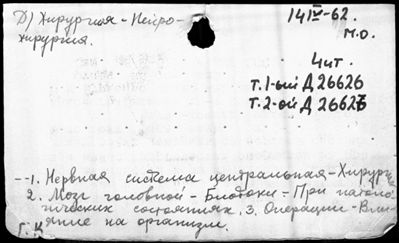 Д) Хирургия - Нейро-
хирургия.
14 IV-62.
М.О.
Чит.
т.1-ый Д 26626
т.2-ой Д 26627
--1. Нервная система центральная - Хирургия
2. Мозг головной - Биотоки - При патоло-
гических состояниях. 3. Операции - Вли-
яние на организм.
Г.К